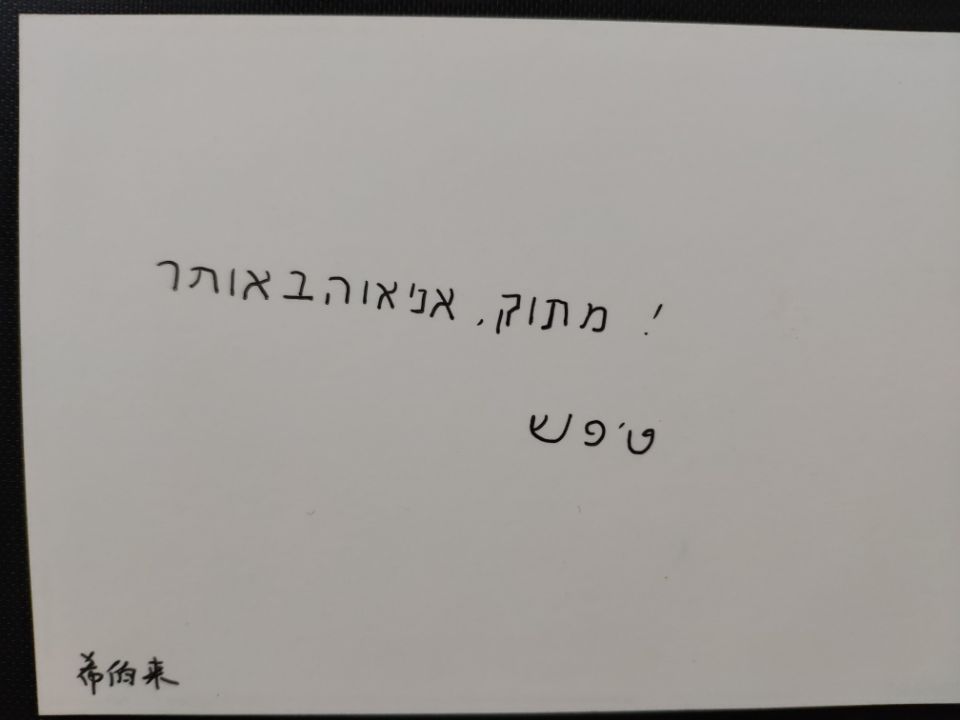 ! מתוק, אניאוהבאותר
טיפש
希伯来